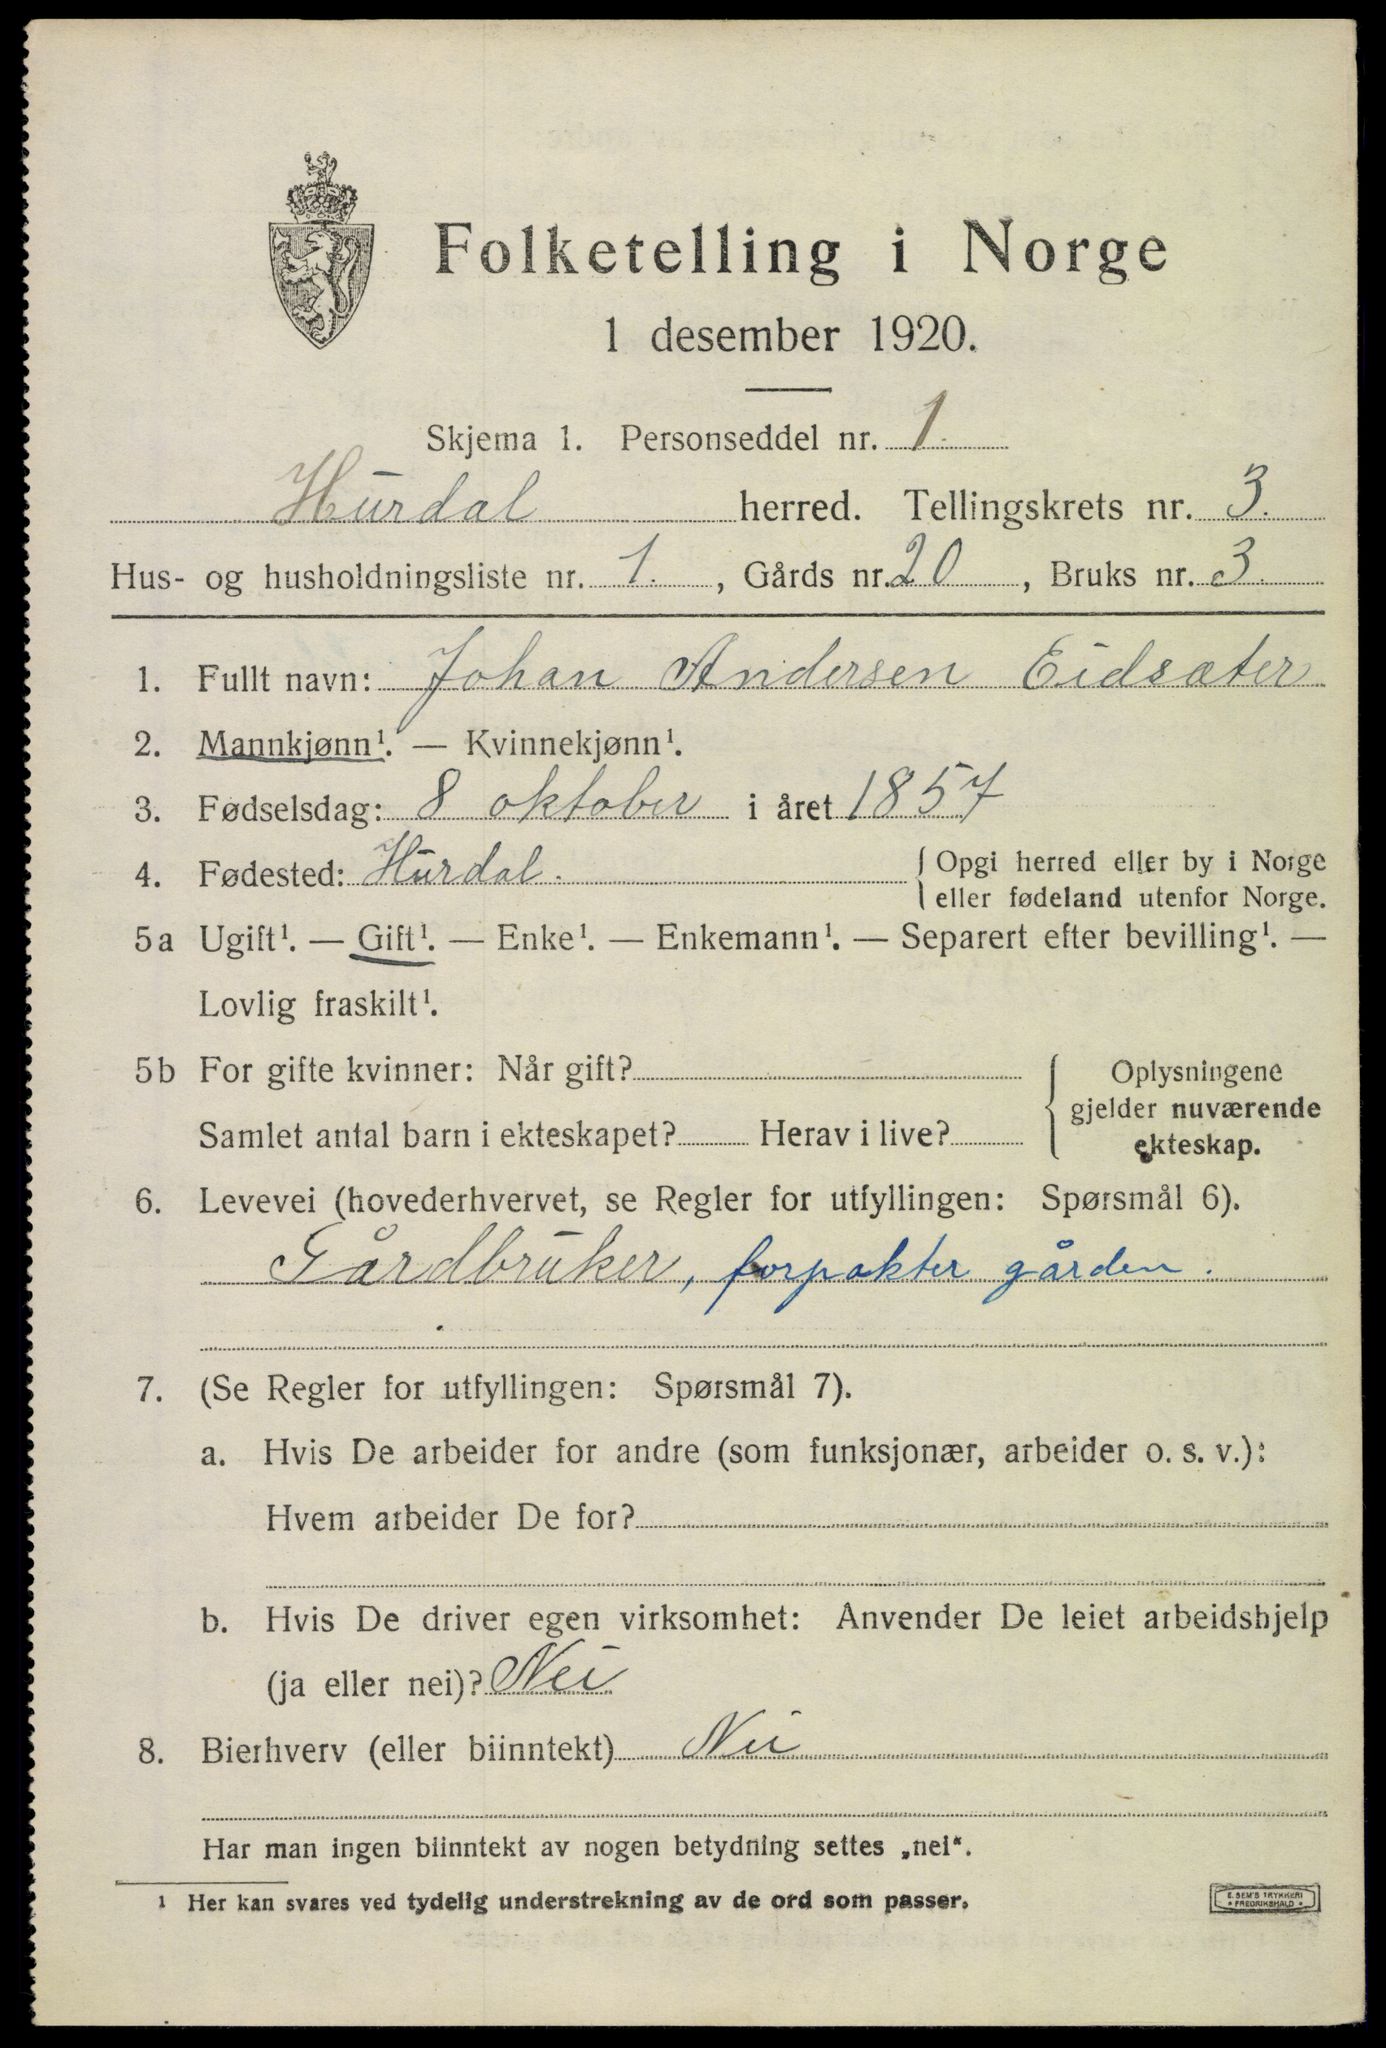 Folketelling i Norge
1 desember 1920.
Skjema 1. Personseddel nr. 1.
Hurdal herred. Tellingskrets nr. 3.
Hus- og husholdningsliste nr. 1., Gårds nr. 20, Bruks nr. 3.
1. Fullt navn: Johan Andersen Eidsæter
2. Mannkjønn¹. — Kvinnekjønn¹.
3. Fødselsdag: 8 oktober i året 1857
4. Fødested: Hurdal. { Opgi herred eller by i Norge
eller fødeland utenfor Norge.
5a Ugift¹. — Gift¹. — Enke¹. — Enkemann¹. — Separert efter bevilling¹. —
Lovlig fraskilt¹.
5b For gifte kvinner: Når gift?
Samlet antal barn i ekteskapet? Herav i live?
Oplysningene
gjelder nuværende
ekteskap.
6. Levevei (hovederhvervet, se Regler for utfyllingen: Spørsmål 6).
Gårdbruker, forpakter gården.
7. (Se Regler for utfyllingen: Spørsmål 7).
a. Hvis De arbeider for andre (som funksjonær, arbeider o. s. v.):
Hvem arbeider De for?
b. Hvis De driver egen virksomhet: Anvender De leiet arbeidshjelp
(ja eller nei)? Nei
8. Bierhverv (eller biinntekt) Nei
Har man ingen biinntekt av nogen betydning settes „nei“.
1 Her kan svares ved tydelig understrekning av de ord som passer.
E. SEM'S TRYKKERI
FREDRIKSHALD